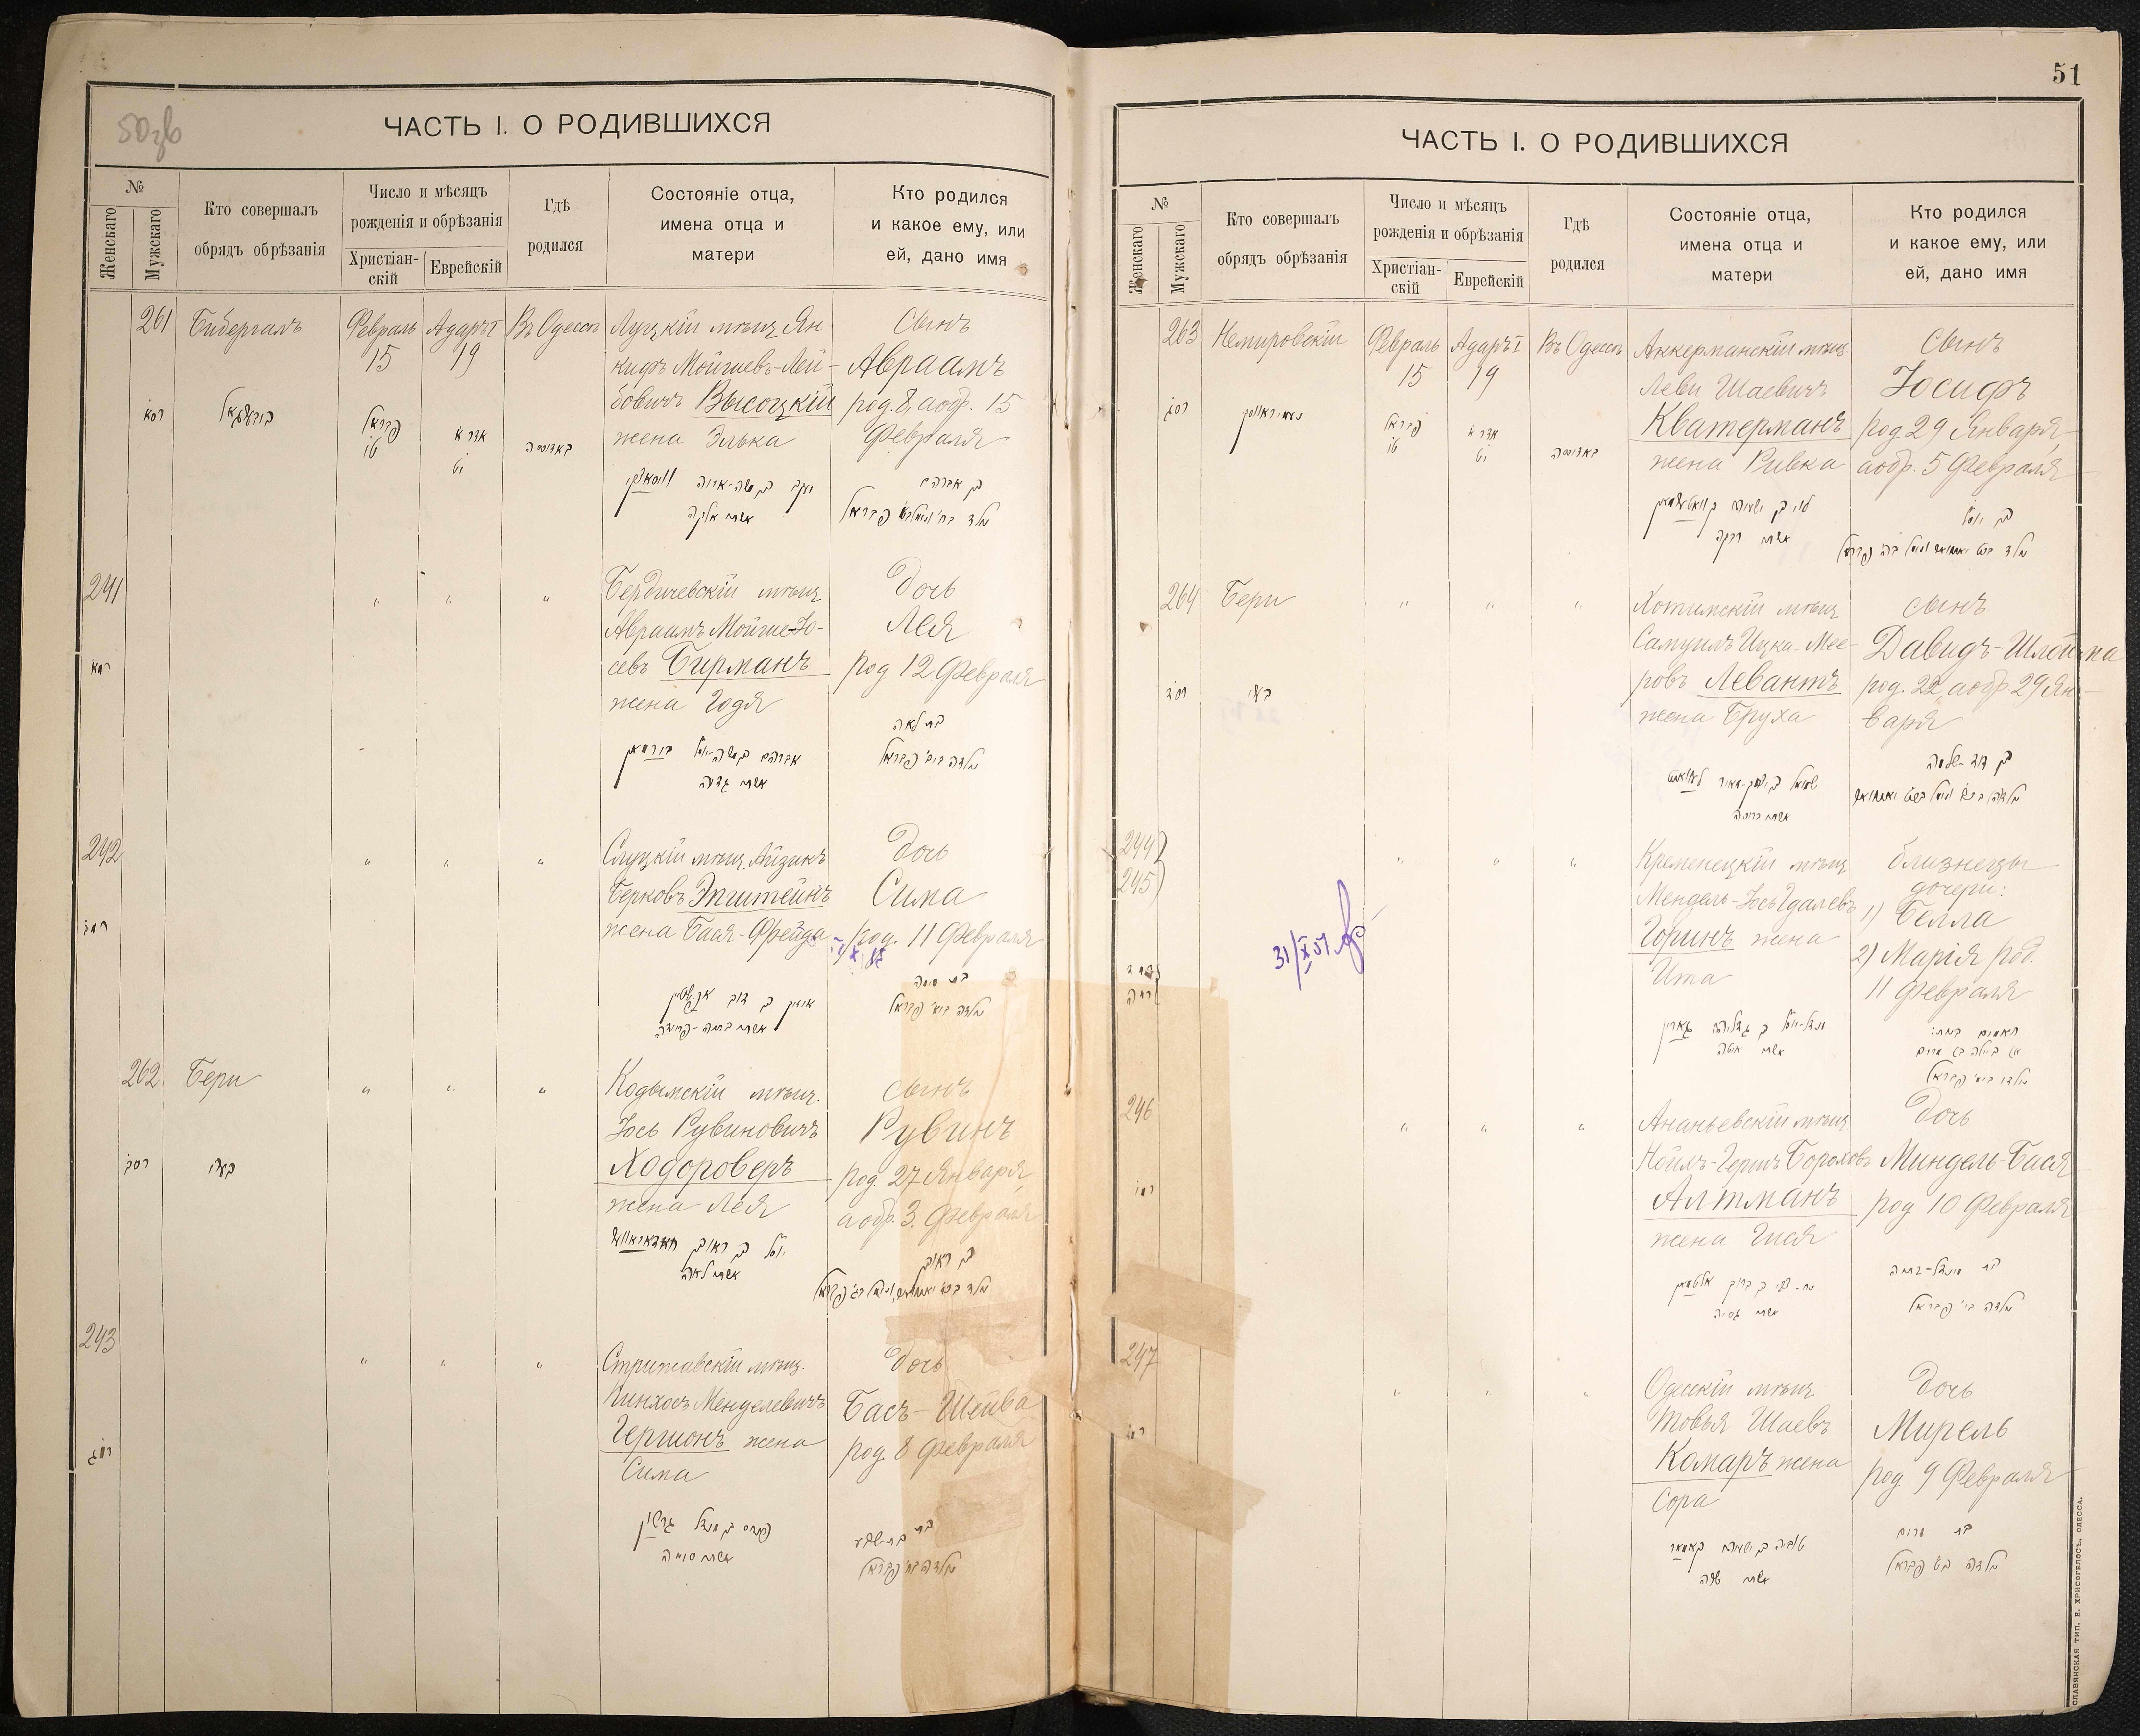 50зв
ЧАСТЬ I. О РОДИВШИХСЯ
№
Женскаго
Мужскаго
Кто совершалъ
обрядъ обрѣзанія
Число и мѣсяцъ
рожденія и обрѣзанія
Христіан-
скій
Еврейскій
Гдѣ
родился
Состояніе отца,
имена отца и
матери
Кто родился
и какое ему, или
ей, дано имя
261
Бибергалъ
Февраль
15
Адаръ I
19
Въ Одессѣ
Луцкій мѣщ. Ян-
кифъ Мойшевъ-Лей-
бовичъ Высоцкій
жена Элька
Сынъ
Авраамъ
род. 8, а обр. 15
Февраля
רסא
פברואר
ט״ו
אדר א׳
י״ט
באדעססה
אשתו אלקה
בן אברהם
241
"
"
"
Бердичевскій мѣщ.
Авраамъ Мойше-Іо-
севъ Бирманъ
жена Годя
Дочь
Лея
род 12 Февраля
רמא
בת לאה
נולדה בי״ב פברואר
242
"
"
"
Слуцкій мѣщ. Айзикъ
Берковъ Эпштейнъ
жена Бася-Фрейда
Дочь
Сима
род. 11 Февраля
רמב
בת סימה
נולדה בי״א פברואר
262
Бери
"
"
"
Кодымскій мѣщ.
Іось Рувиновичъ
Ходороверъ
жена Лея
сынъ
Рувинъ
род. 27 Января,
а обр. 3. Февраля
רסב
בערי
אשתו לאה
בן ראובן
243
"
"
"
Стрижавскій мѣщ.
Пинхосъ Менделевичъ
Гершонъ жена
Сима
дочь
Басъ-Шейва
род. 8 Февраля
רמג
פנחס בן מנדל גרשון
אשתו סימה
בת בת-שבע
נולדה בח׳ פברואר
51
ЧАСТЬ I. О РОДИВШИХСЯ
№
Женскаго
Мужскаго
Кто совершалъ
обрядъ обрѣзанія
Число и мѣсяцъ
рожденія и обрѣзанія
Христіан-
скій
Еврейскій
Гдѣ
родился
Состояніе отца,
имена отца и
матери
Кто родился
и какое ему, или
ей, дано имя
263
Немировскій
Февраль
15
Адаръ I
19
Въ Одессѣ
Аккерманскій мѣщ.
Леви Шаевичъ
Кватерманъ
жена Ривка
Сынъ
Іосифъ
род. 29 Января,
а обр. 5 Февраля
רסג
פברואר
ט״ו
אדר א׳
י״ט
באדעססה
אשתו רבקה
264
Бери
"
"
"
Хотимскій мѣщ
Самуилъ Ицка-Мее-
ровъ Левантъ
жена Бруха
сынъ
Давидъ-Шлойма
род. 22, а обр. 29 Ян-
варя
רסד
בערי
אשתו ברוכה
בן דוד-שלמה
244)
245)
"
"
"
Кременецкій мѣщ
Мендель-Іось Гдалевъ
Горинъ жена
Ита
близнецы
дочери:
1) Белла
2) Марія род.
11 Февраля
31/X 51
רמד
רמה
אשתו איטה
246
"
"
"
Ананьевскій мѣщ.
Нойхъ-Гершъ Бороховъ
Алтманъ
жена Гися
Дочь
Миндель-Бася
род 10 Февраля
רמו
נולדה בי׳ פברואר
247
"
"
"
Одесскій мѣщ
Товья Шаевъ
Комаръ жена
Сора
Дочь
Мирель
род 9 Февраля
רמז
אשתו שרה
בת מרים
נולדה בט׳ פברואר
СЛАВЯНСКАЯ ТИП. Е. ХРИСОГЕЛОСЪ. ОДЕССА.